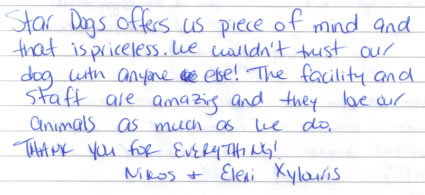 Star Dogs offers us piece of mind and
that is priceless. We wouldn't trust our
dog with anyone else! The facility and
staff are amazing and they love our
animals as much as we do.
THANK YOU FOR EVERYTHING!
Nikos + Eleni Xylouris